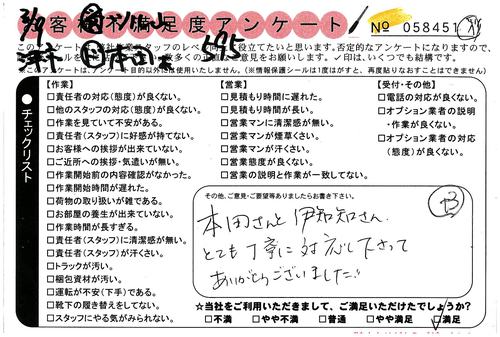 お客様不満足度アンケート
№ 058451
本田
695
※このアンケートは、アンケート目的以外には使用いたしません。(※情報保護シールは1度はがすと、再度貼りなおすことはできません)
チェックリスト
【作業】
□責任者の対応(態度)が良くない。
□他のスタッフの対応(態度)が良くない。
□作業を見ていて不安がある。
□責任者(スタッフ)に好感が持てない。
□お客様への挨拶が出来ていない。
□ご近所への挨拶・気遣いが無い。
□作業開始前の内容確認がなかった。
□作業開始時間が遅れた。
□荷物の取り扱いが雑である。
□お部屋の養生が出来ていない。
□作業時間が長すぎる。
□責任者(スタッフ)に清潔感が無い。
□責任者(スタッフ)が汗くさい。
□トラックが汚い。
□梱包資材が汚い。
□運転が不安(下手)である。
□靴下の履き替えをしてない。
□スタッフにやる気がみられない。
【営業】
□見積もり時間に遅れた。
□見積もり時間が長い。
□営業マンに清潔感が無い。
□営業マンが煙草くさい。
□営業マンが汗くさい。
□営業態度が良くない。
□営業の説明と作業が一致してない。
【受付・その他】
□電話の対応が良くない。
□オプション業者の説明
・作業が良くない。
□オプション業者の対応
(態度)が良くない。
その他、ご意見・ご要望等ありましたらお書き下さい。
本田さんと伊知知さん
とても丁寧に対応し下さって
ありがとうございました。
★当社をご利用いただきまして、ご満足いただけたでしょうか?
□不満 □やや不満 □普通 □やや満足 □満足